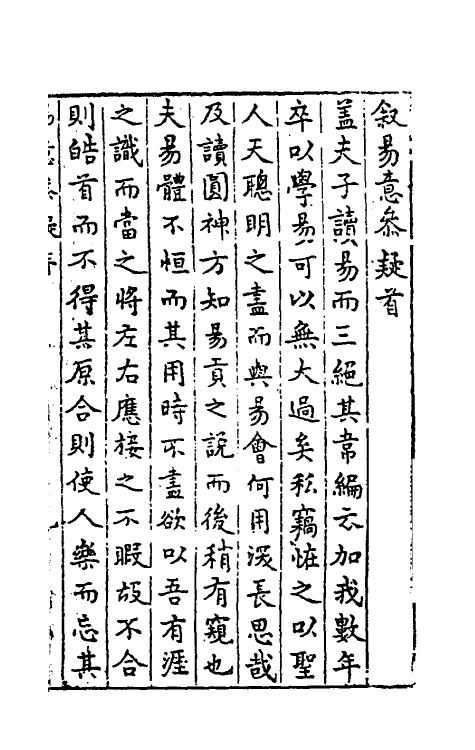 叙易意叅疑首
盖夫子讀易而三絕其韋編云加我數年
卒以學易可以無大過矣私竊恠之以聖
人天聰明之盡而與易會何用深長思哉
及讀圓神方知易貢之說而後稍有窺也
夫易體不恒而其用時不盡欲以吾有涯
之識而當之將左右應接之不暇故不合
則皓首而不得其原合則使人樂而忘其